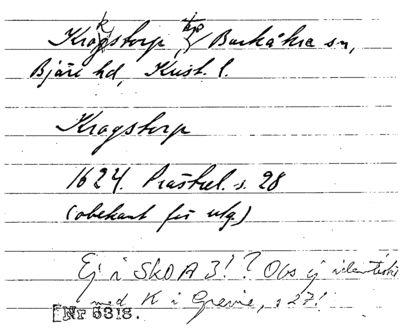 Kragstorp, trp, Barkåkra sn,
Bjäre hd, Krist. l.
Kragstorp
1624. Prästrel. s. 28
(obekant för utg.)
Ej i SkOA 3!? Obs ej identiskt
med K i Grevie, s 27!
[Nr 5318.